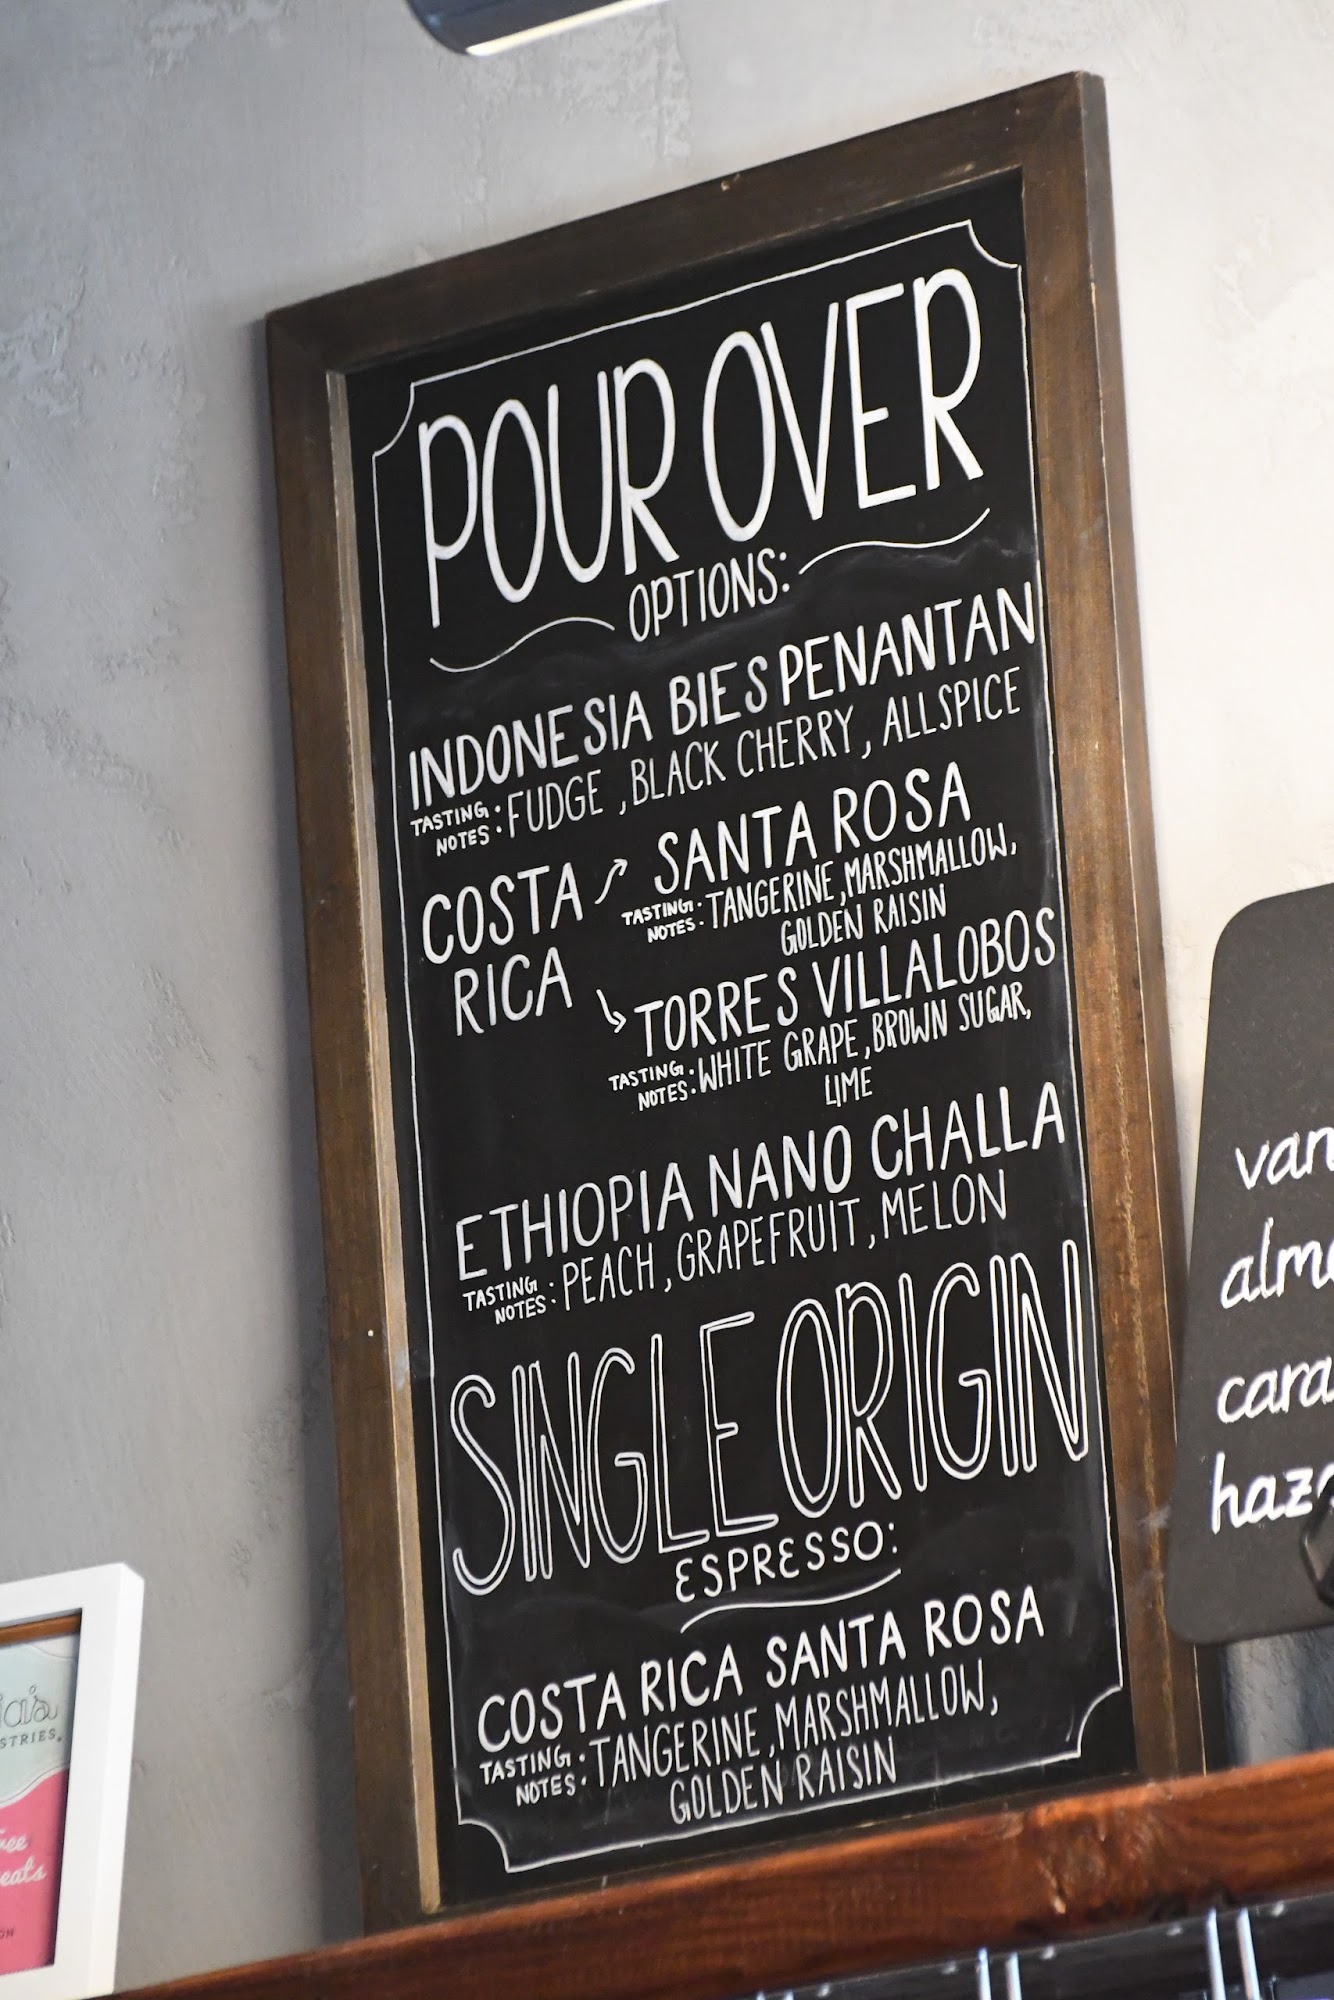 POUR OVER
OPTIONS:
INDONESIA BIES PENANTAN
TASTING NOTES: FUDGE, BLACK CHERRY, ALLSPICE
COSTA RICA
SANTA ROSA
TASTING NOTES: TANGERINE, MARSHMALLOW,
GOLDEN RAISIN
TORRES VILLALOBOS
TASTING NOTES: WHITE GRAPE, BROWN SUGAR,
LIME
ETHIOPIA NANO CHALLA
TASTING NOTES: PEACH, GRAPEFRUIT, MELON
SINGLE ORIGIN
ESPRESSO:
COSTA RICA SANTA ROSA
TASTING NOTES: TANGERINE, MARSHMALLOW,
GOLDEN RAISIN